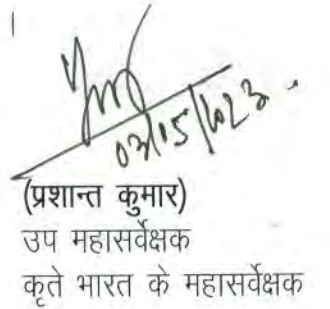 03/05/2023
(प्रशान्त कुमार)
उप महासर्वेक्षक
कृते भारत के महासर्वेक्षक